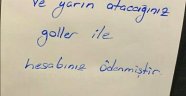 ve yarın atacağınız
goller ile
hesabınız ödenmiştir.